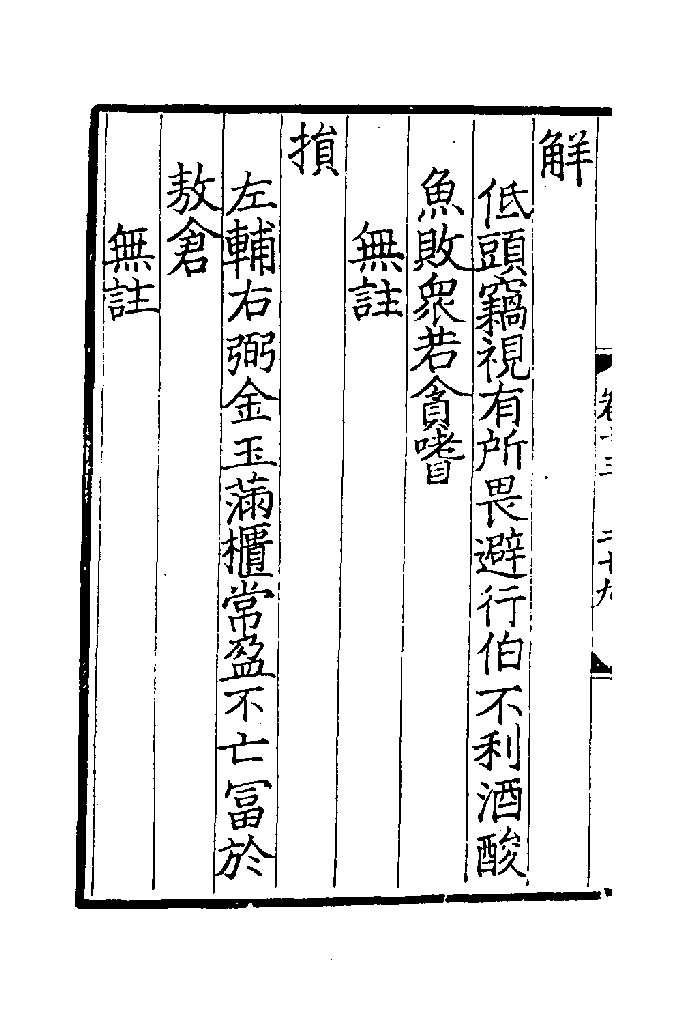 卷十三 二十九
解
低頭竊視有所畏避行伯不利酒酸
魚敗衆若貪嗜
無註
損
左輔右弼金玉滿櫃常盈不亡冨於
敖倉
無註